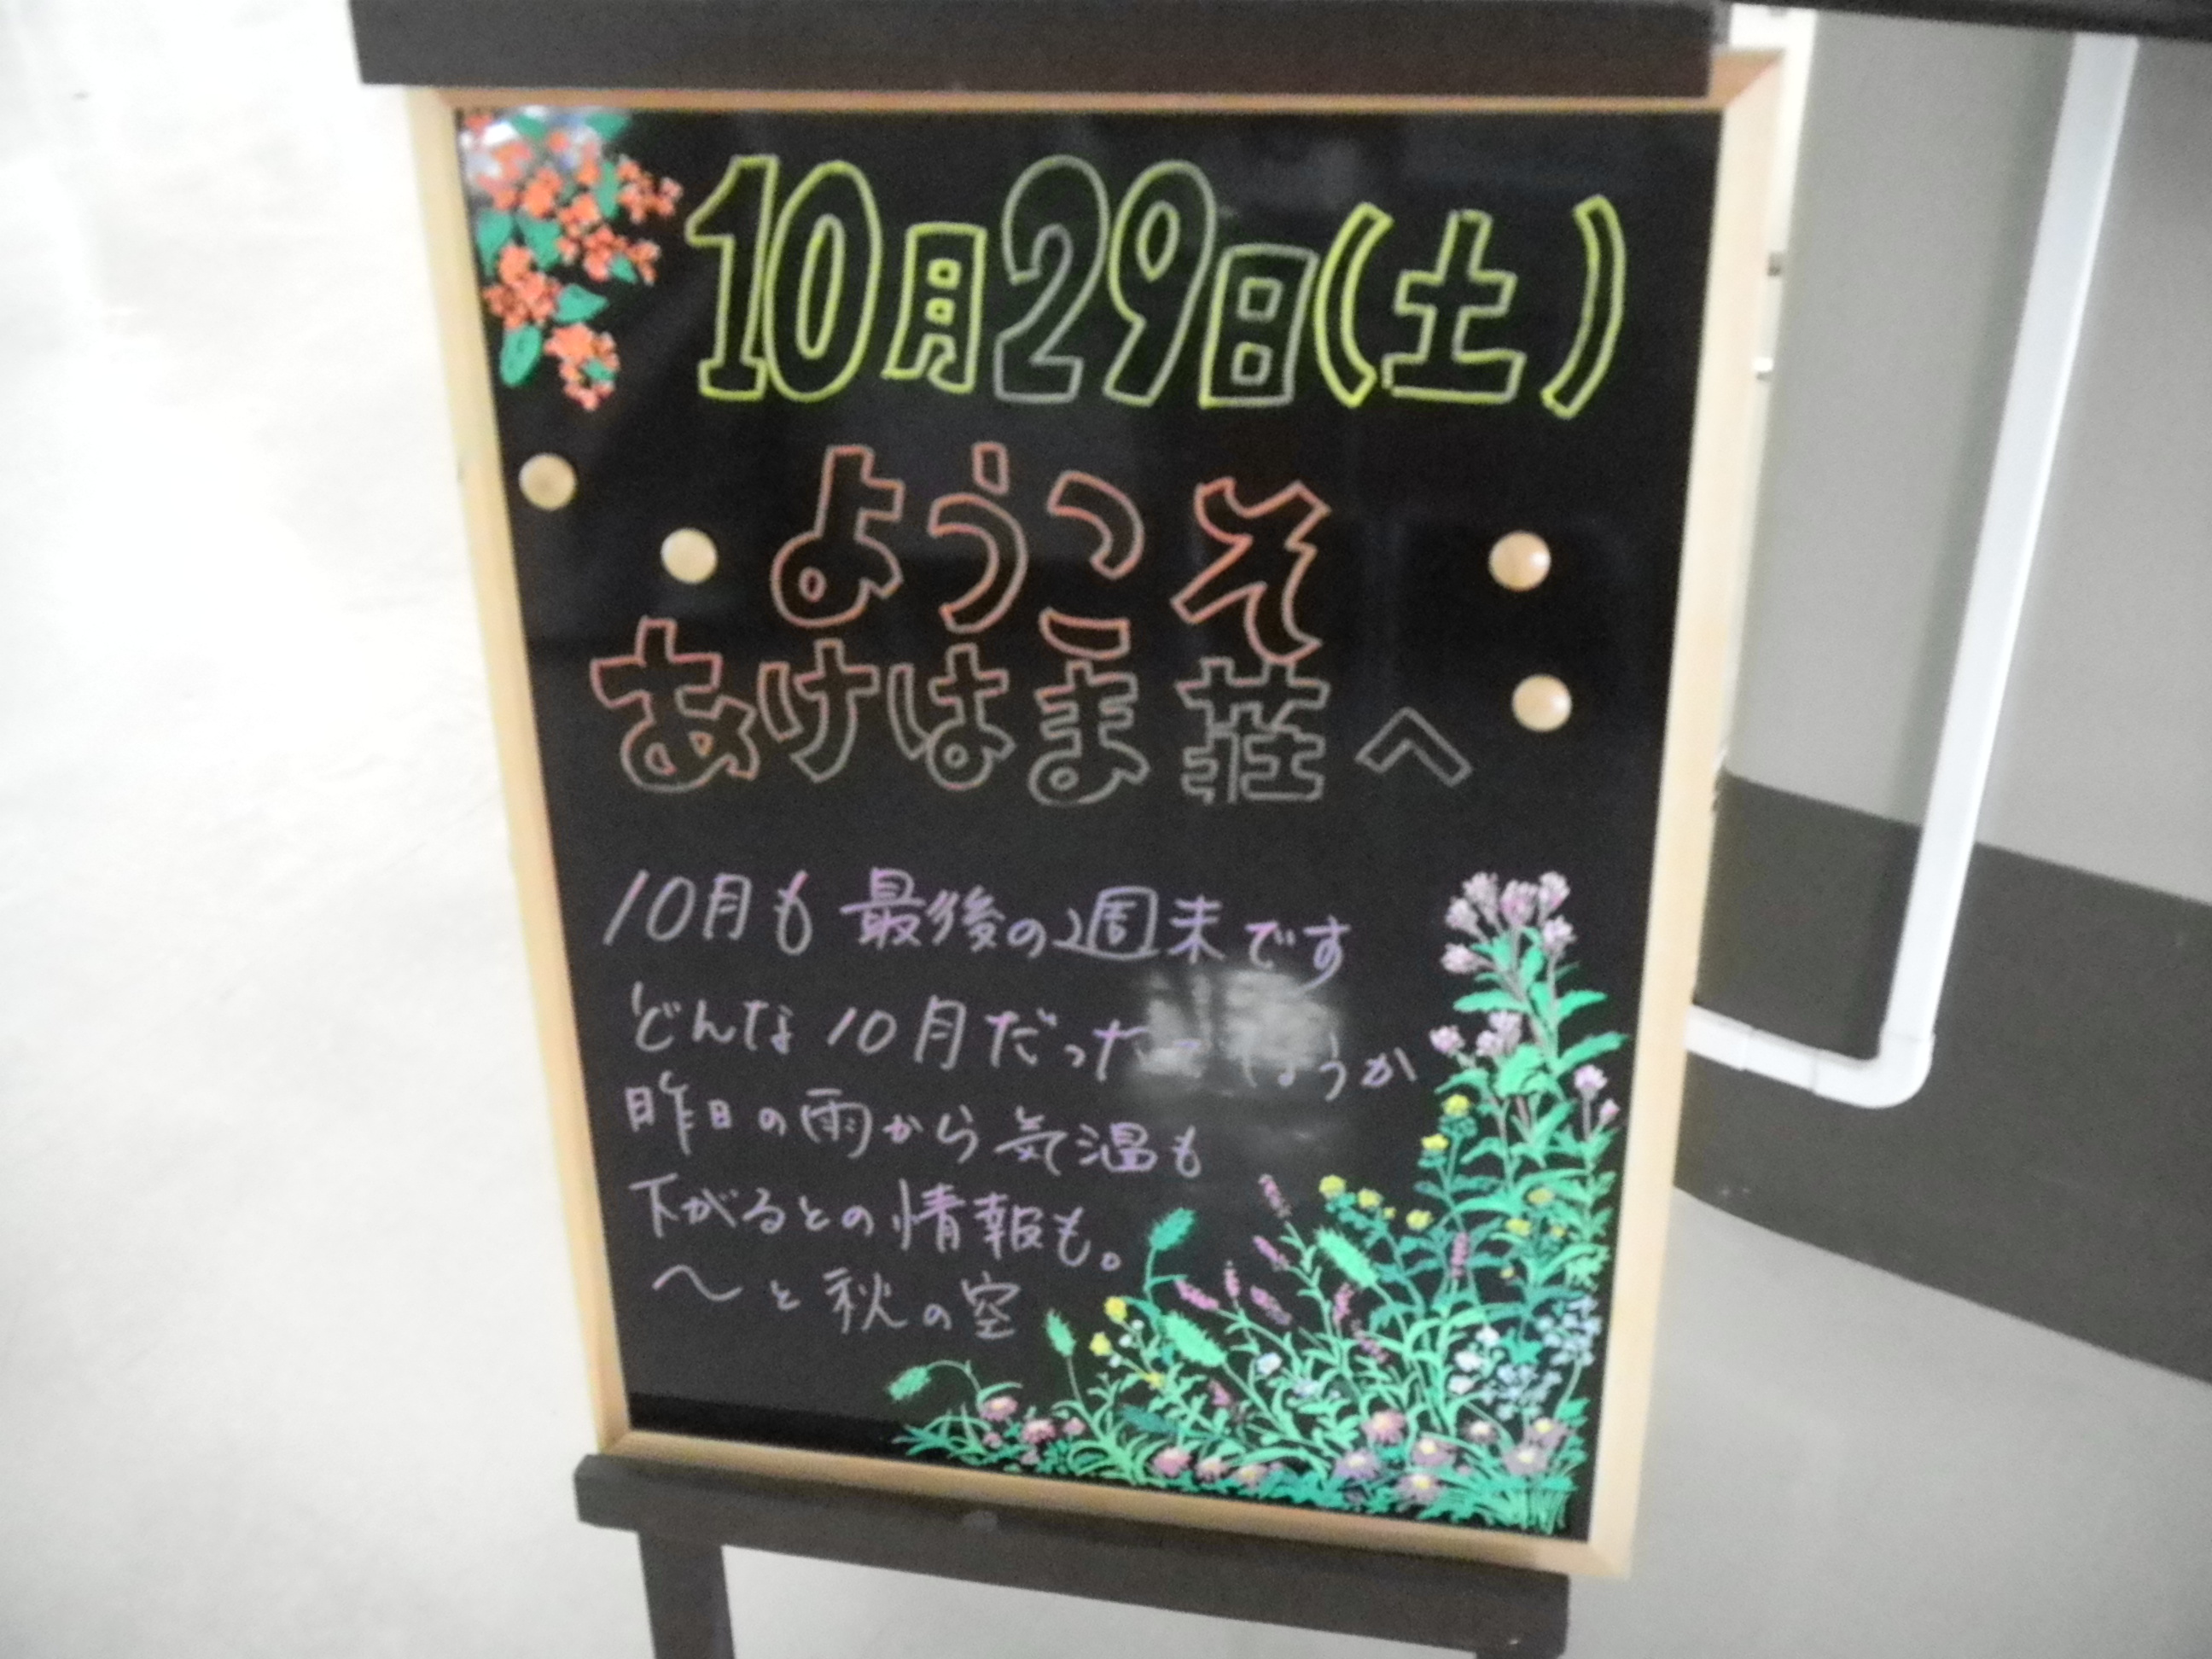 10月29日(土)
ようこそ
あけはま荘へ
10月も最後の週末です
どんな10月だった うか
昨日の雨から気温も
下がるとの情報も。
〜と秋の空